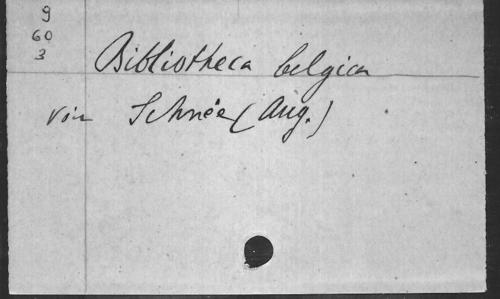 9
60
3
Bibliotheca belgica
voir Schnée (Aug.)